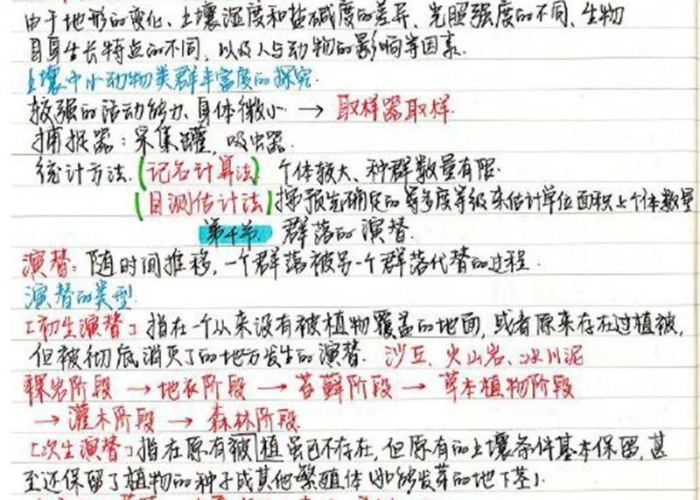 由于地形的变化、土壤湿度和盐碱度的差异、光照强度的不同、生物
自身生长特点的不同,以及人与动物的影响等因素.
土壤中小动物类群丰富度的探究.
较强的活动能力、身体微小 → 取样器取样.
捕捉器:采集罐,吸虫器.
统计方法.(记名计算法) 个体较大、种群数量有限.
(目测估计法) 按预先确定的多度等级来估计单位面积上个体数量
第4节. 群落的演替.
演替:随时间推移,一个群落被另一个群落代替的过程.
演替的类型.
[初生演替]指在一个从来没有被植物覆盖的地面,或者原来存在过植被,
但被彻底消灭了的地方发生的演替. 沙丘、火山岩、冰川泥
裸岩阶段 → 地衣阶段 → 苔藓阶段 → 草本植物阶段
→ 灌木阶段 → 森林阶段
[次生演替]指在原有被植虽已不存在,但原有的土壤条件基本保留,甚
至还保留了植物的种子或其他繁殖体(如能发芽的地下茎).